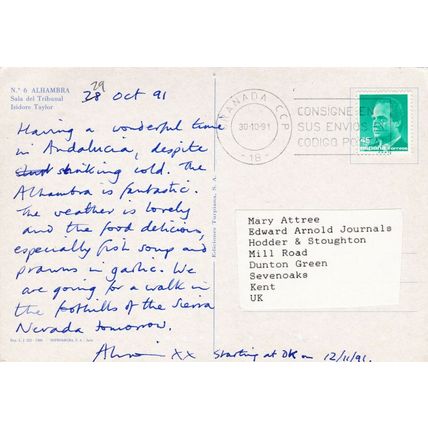 Nº 6 ALHAMBRA
Sala del Tribunal
Isidore Taylor
29
28 Oct 91
Having a wonderful time
in Andalucia, despite
striking cold. The
Alhambra is fantastic.
The weather is lovely
and the food delicious,
especially fish soup and
prawns in garlic. We
are going for a walk in
the foothills of the Sierra
Nevada tomorrow.
XX Starting at DK on 12/11/91.
Ediciones Turpiana, S. A.
GRANADA CCP
30-10-91
-1B-
CONSIGNE EN
SUS ENVIOS EL
CODIGO PO
45
españa correos
Mary Attree
Edward Arnold Journals
Hodder & Stoughton
Mill Road
Dunton Green
Sevenoaks
Kent
UK